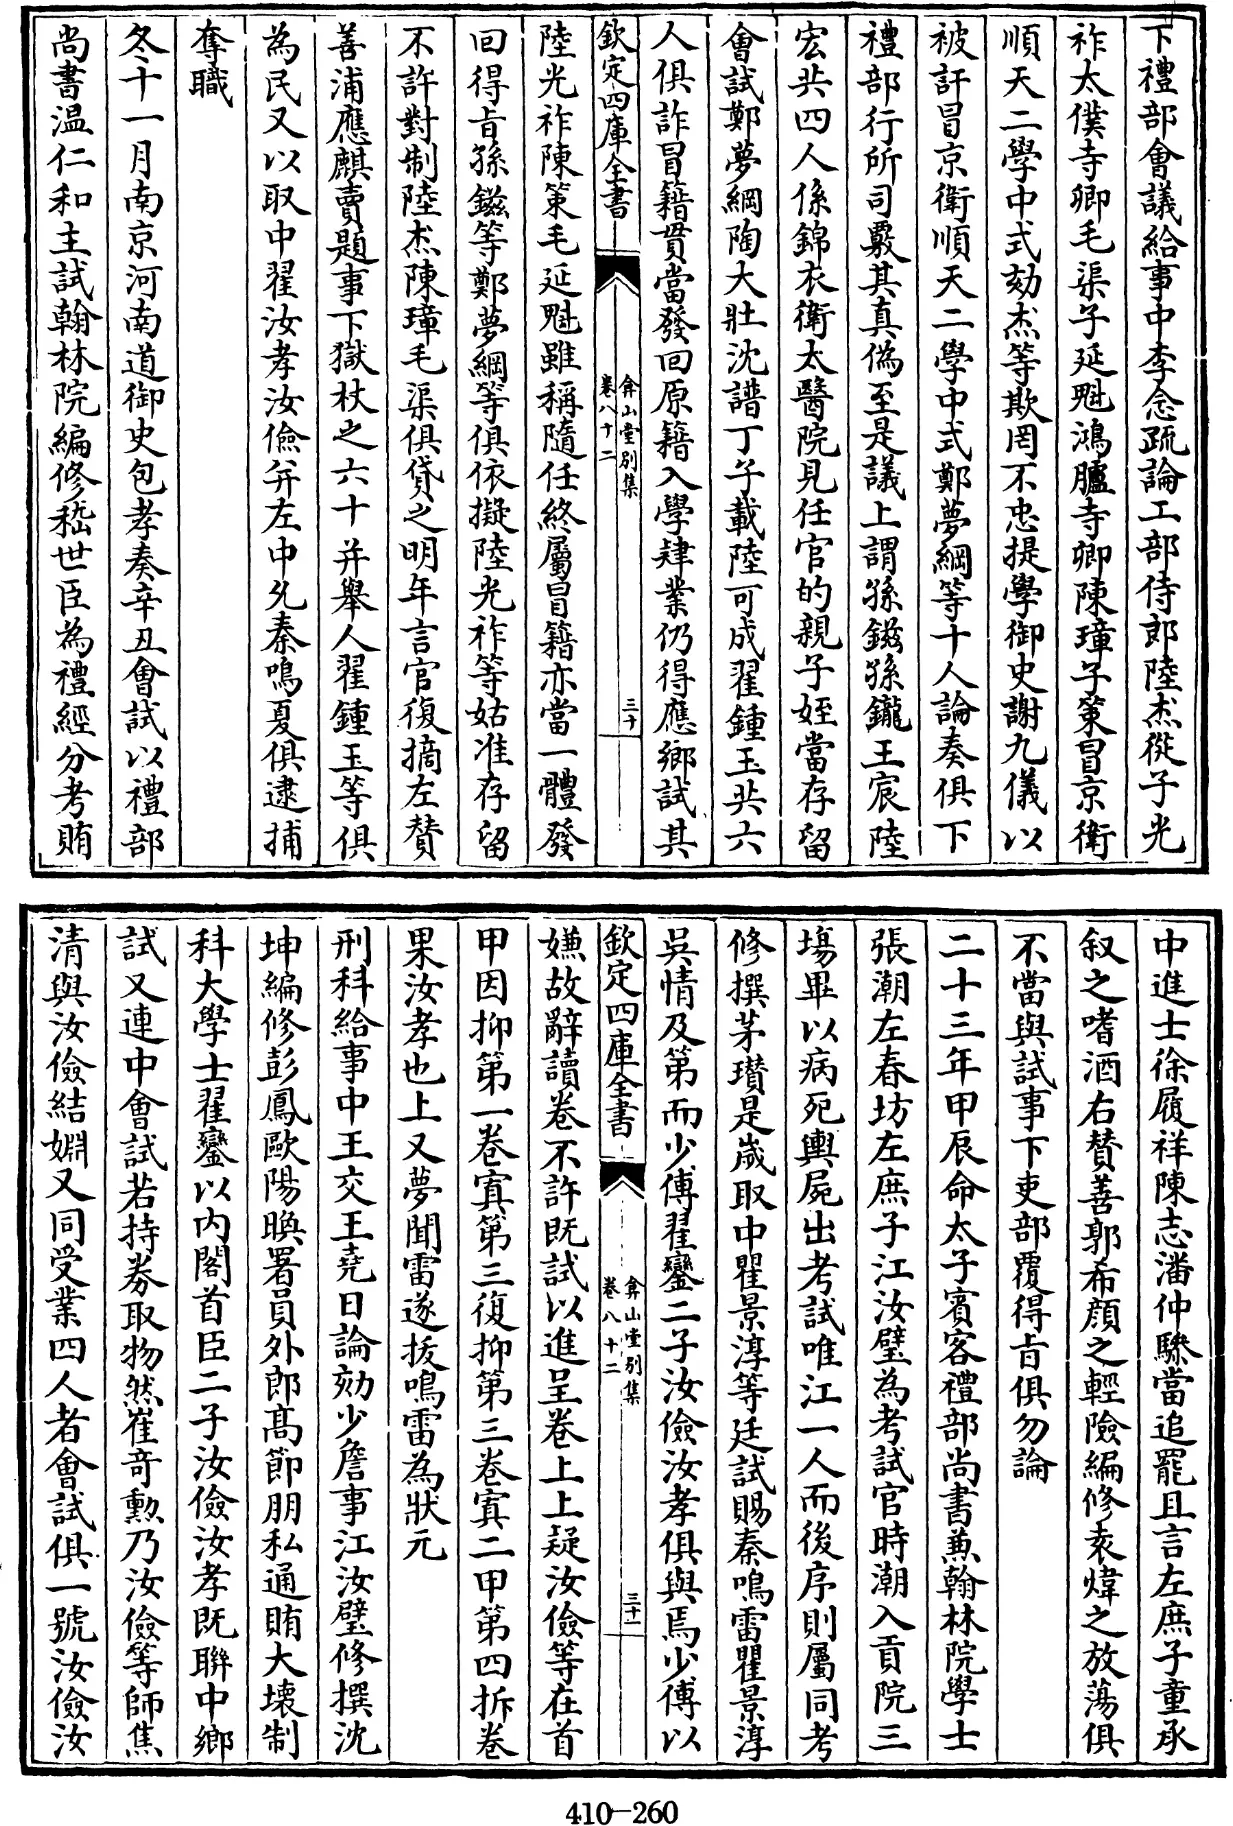 下禮部會議給事中李念疏論工部侍郎陸杰從子光
祚太僕寺卿毛渠子延魁鴻臚寺卿陳璋子策冒京衛
順天二學中式劾杰等欺罔不忠提學御史謝九儀以
被訐冒京衛順天二學中式鄭夢綱等十人論奏俱下
禮部行所司覈其真偽至是議上謂孫鎡孫鑨王宸陸
宏共四人係錦衣衛太醫院見任官的親子姪當存留
會試鄭夢綱陶大壯沈譜丁子載陸可成翟鍾玉共六
人俱詐冒籍貫當發回原籍入學肄業仍得應鄉試其
欽定四庫全書
弇山堂別集
卷八十二
三十
陸光祚陳策毛延魁雖稱隨任終屬冒籍亦當一體發
回得旨孫鎡等鄭夢綱等俱依擬陸光祚等姑准存留
不許對制陸杰陳璋毛渠俱貸之明年言官復摘左贊
善浦應麒賣題事下獄杖之六十并舉人翟鍾玉等俱
為民又以取中翟汝孝汝儉并左中允秦鳴夏俱逮捕
奪職
冬十一月南京河南道御史包孝奏辛丑會試以禮部
尚書溫仁和主試翰林院編修嵇世臣為禮經分考賄
中進士徐履祥陳志潘仲驂當追罷且言左庶子童承
叙之嗜酒右贊善郭希顏之輕險編修袁煒之放蕩俱
不當與試事下吏部覆得旨俱勿論
二十三年甲辰命太子賓客禮部尚書兼翰林院學士
張潮左春坊左庶子江汝璧為考試官時潮入貢院三
場畢以病死輿屍出考試唯江一人而後序則屬同考
修撰茅瓚是歲取中瞿景淳等廷試賜秦鳴雷瞿景淳
吳情及第而少傅翟鑾二子汝儉汝孝俱與焉少傅以
欽定四庫全書
弇山堂別集
卷八十二
三十一
嫌故辭讀卷不許既試以進呈卷上上疑汝儉等在首
甲因抑第一卷寘第三復抑第三卷寘二甲第四拆卷
果汝孝也上又夢聞雷遂拔鳴雷為狀元
刑科給事中王交王堯日論劾少詹事江汝璧修撰沈
坤編修彭鳳歐陽㬇署員外郎高節朋私通賄大壞制
科大學士翟鑾以內閣首臣二子汝儉汝孝既聯中鄉
試又連中會試若持券取物然崔奇勲乃汝儉等師焦
清與汝儉結婣又同受業四人者會試俱一號汝儉汝
410-260